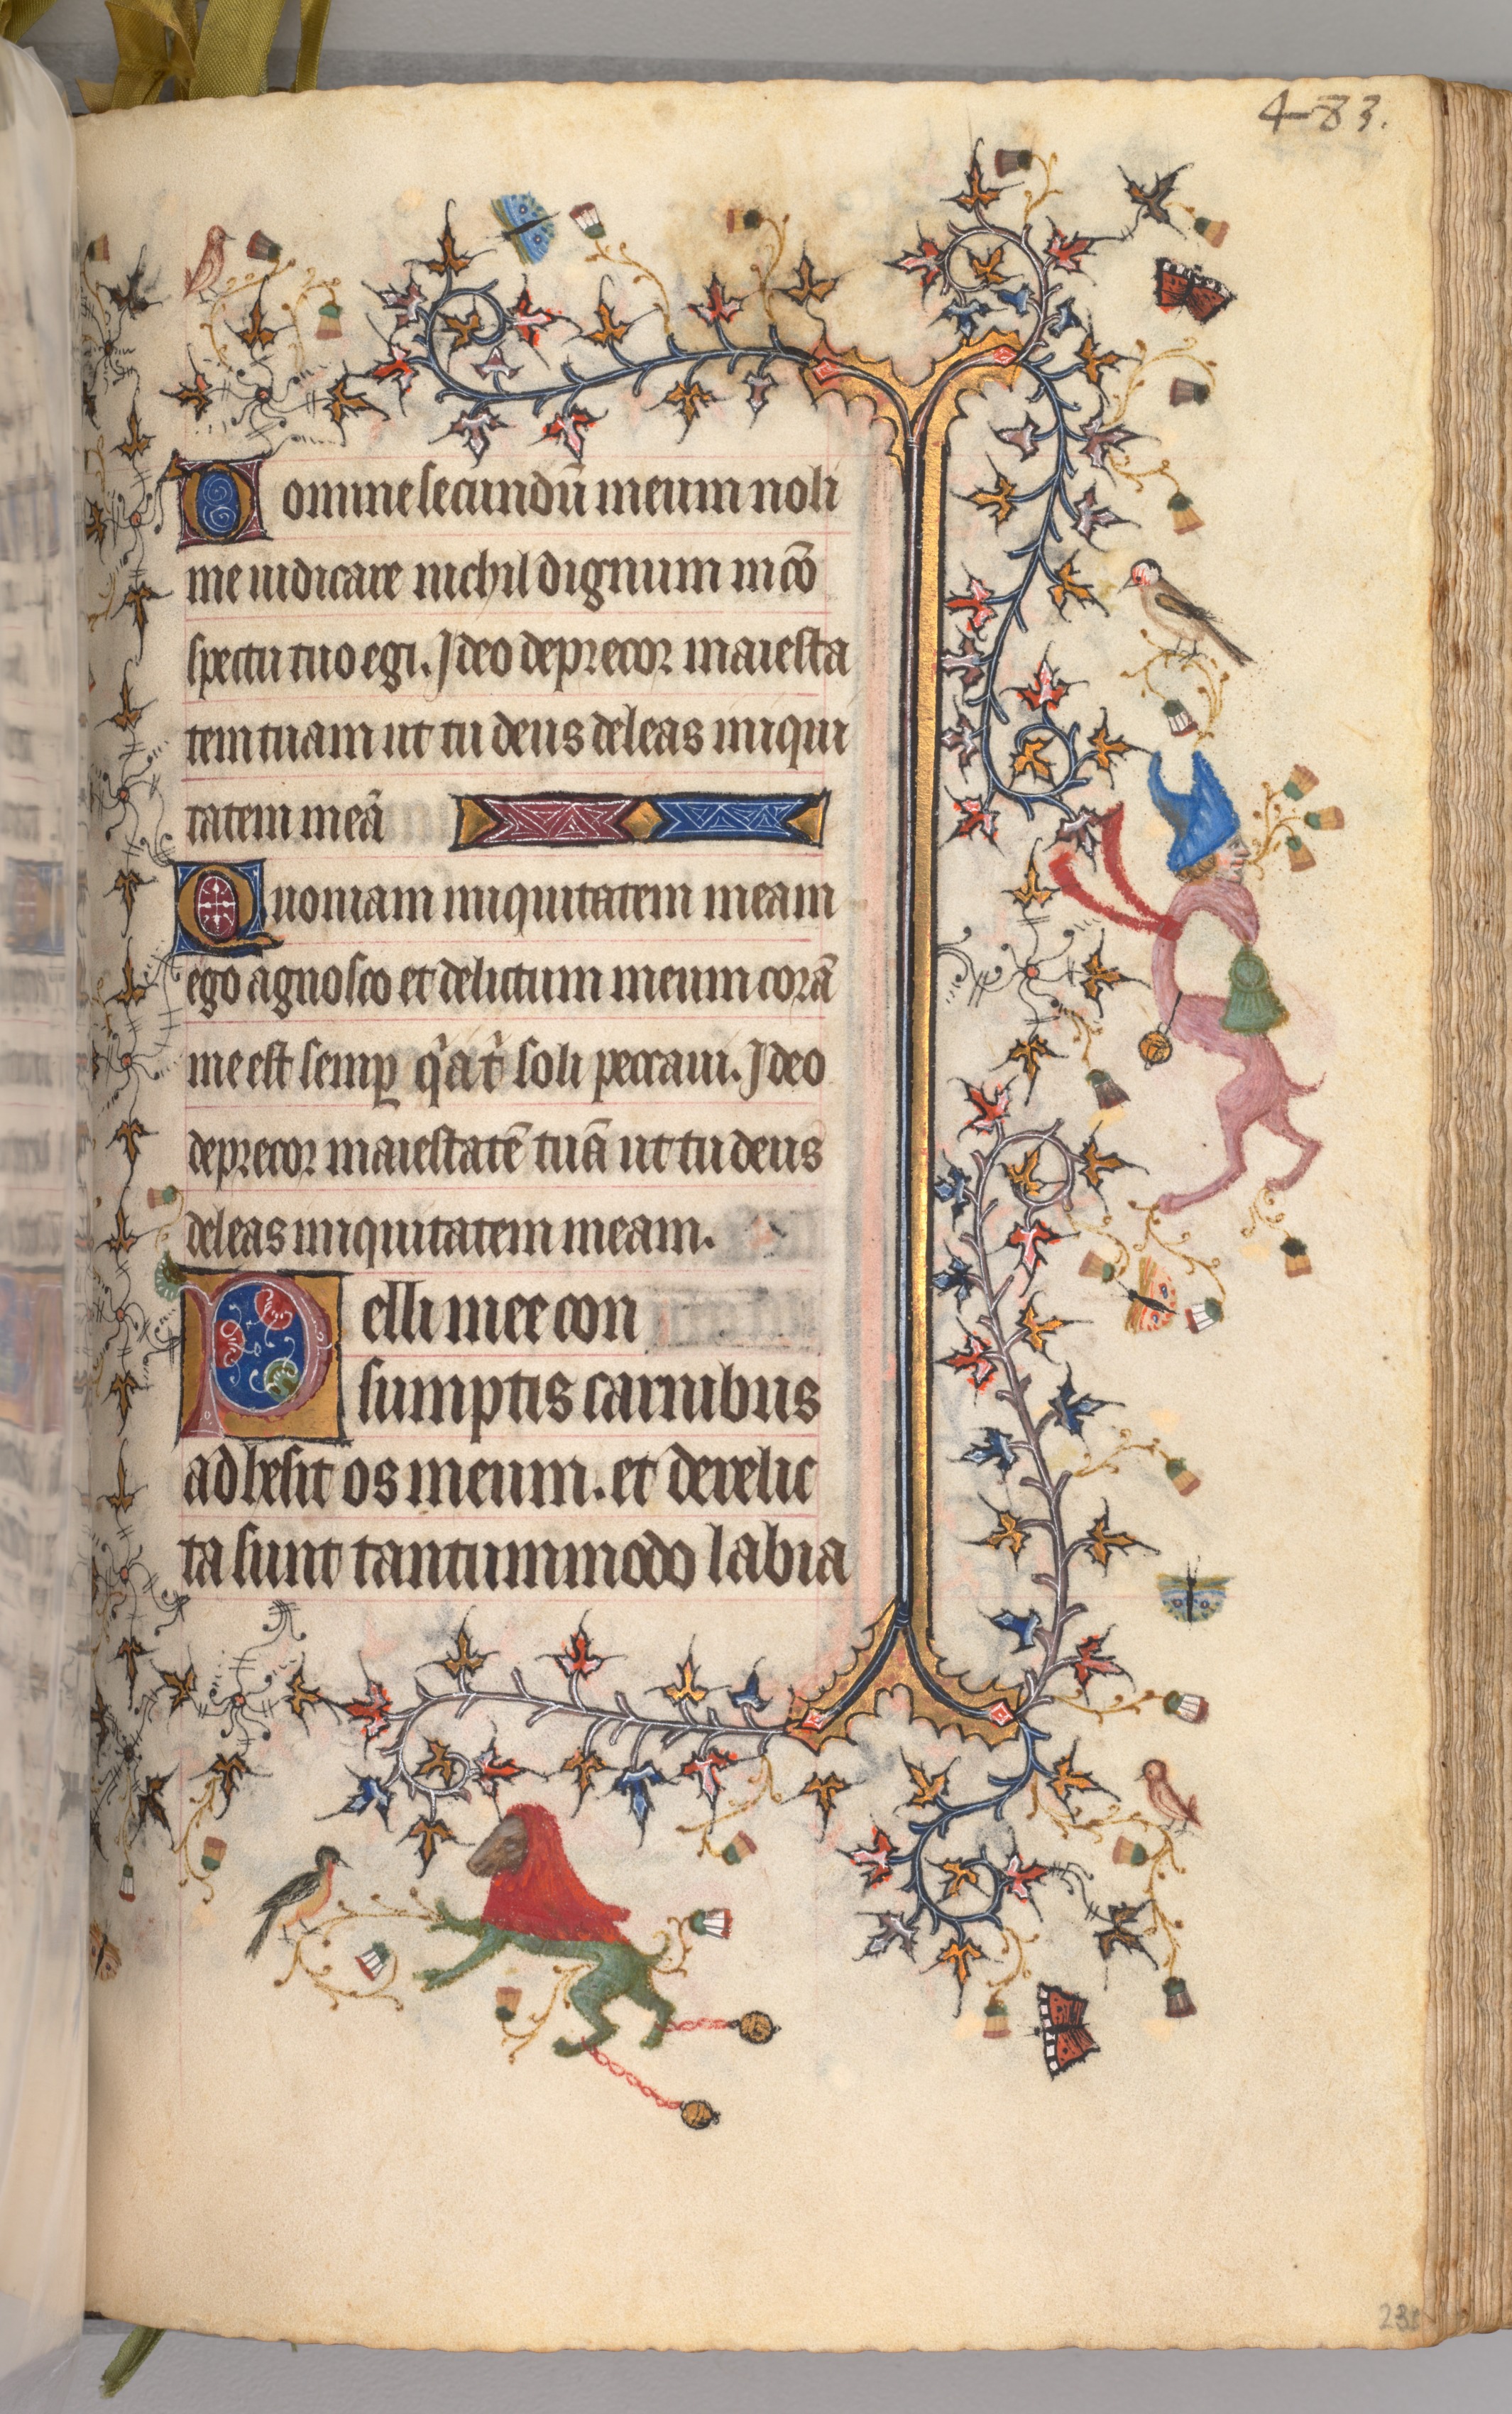 483.
Domine secundū meum noli
me iudicare nichil dignum in cō
spectu tuo egi. Ideo deprecor maiesta
tem tuam ut tu deus deleas iniqui
tatem meā
Quoniam iniquitatem meam
ego agnosco et delictum meum corā
me est semꝑ qͥa tͥ soli peccaui. Ideo
deprecor maiestatē tuā ut tu deus
deleas iniquitatem meam.
Pelli mee con
sumptis carnibus
adhesit os meum. et derelic
ta sunt tantummodo labia